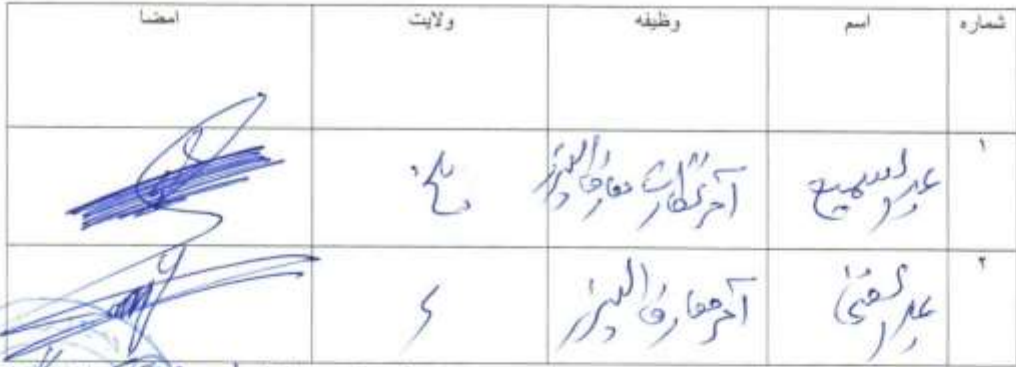 شماره اسم وظیفه ولایت امضا
۱ عبدالسمیع آمر نظارت معارف البرز بلخ
۲ عبدالغنی آمر معارف البرز